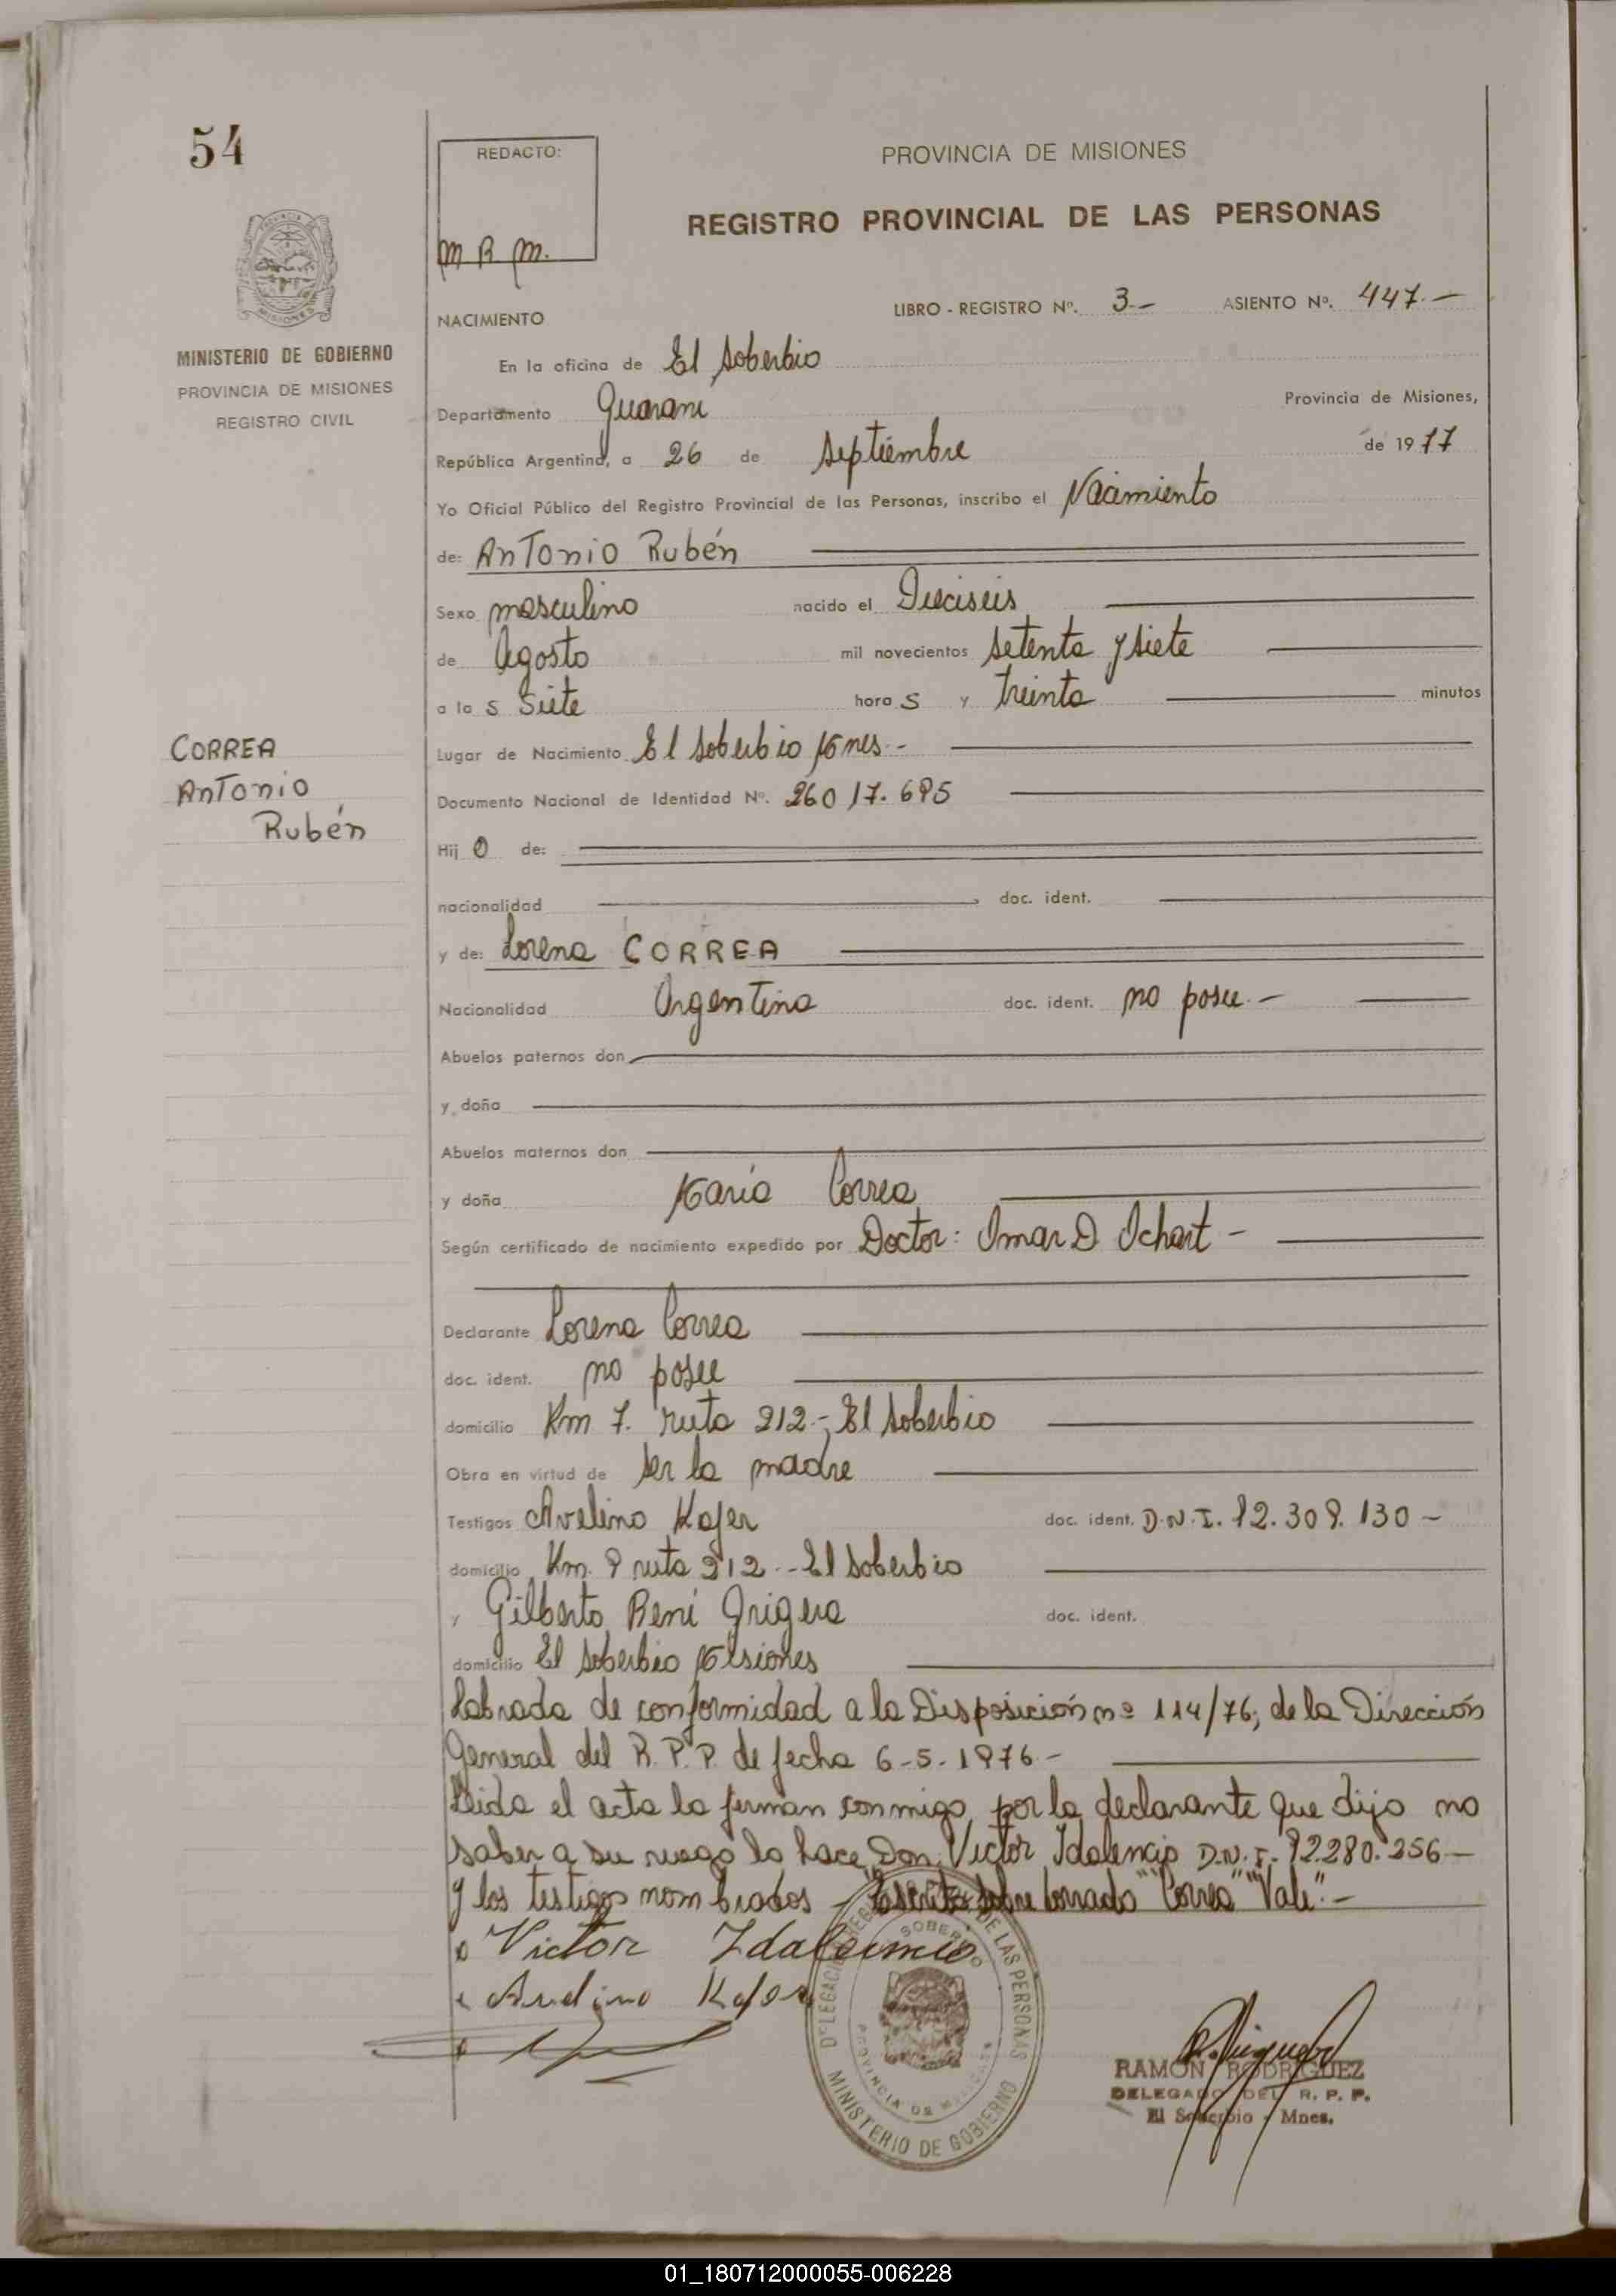 54
REDACTO:
M R M.
PROVINCIA DE MISIONES
REGISTRO PROVINCIAL DE LAS PERSONAS
MINISTERIO DE GOBIERNO
PROVINCIA DE MISIONES
REGISTRO CIVIL
NACIMIENTO
LIBRO - REGISTRO Nº. 3.- ASIENTO Nº. 447.-
En la oficina de El Soberbio
Departamento Guarani Provincia de Misiones,
República Argentina, a 26 de septiembre de 1977
Yo Oficial Público del Registro Provincial de las Personas, inscribo el Nacimiento
de: Antonio Rubén
Sexo masculino nacido el Dieciseis
de Agosto mil novecientos setenta y siete
a la s Siete hora s y treinta minutos
CORREA
Antonio
Rubén
Lugar de Nacimiento El Soberbio Mnes.-
Documento Nacional de Identidad Nº. 26017.695
Hij o de:
nacionalidad doc. ident.
y de: Lorena CORREA
Nacionalidad Argentina doc. ident. no posee.-
Abuelos paternos don
y doña
Abuelos maternos don
y doña Maria Correa
Según certificado de nacimiento expedido por Doctor: Omar D Ochart -
Declarante Lorena Correa
doc. ident. no posee
domicilio Km 7. ruta 212.- El Soberbio
Obra en virtud de ser la madre
Testigos Avelino Kafer doc. ident. D.N.I. 12.309.130 -
domicilio Km. 9 ruta 212.- El Soberbio
y Gilberto Reni Grigera doc. ident.
domicilio El Soberbio Misiones
Labrada de conformidad a la Disposición nº 114/76, de la Dirección
General del R.P.P. de fecha 6-5-1976.-
Leida el acta la firman conmigo, por la declarante que dijo no
saber a su ruego lo hace Don Victor Idalencio D.N.I. 12.280.256 -
y los testigos nombrados - Escrito sobre borrado "Correa" "Vale".-
Victor Idalencio
Avelino Kafer
DELEGACION REGISTRO DE LAS PERSONAS
SOBERBIO
PROVINCIA DE MISIONES
MINISTERIO DE GOBIERNO
RAMON RODRIGUEZ
DELEGADO DEL R. P. P.
El Soberbio - Mnes.
01_180712000055-006228